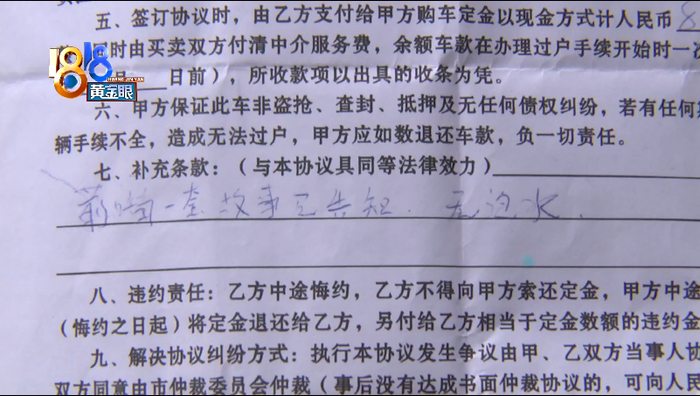 五、签订协议时，由乙方支付给甲方购车定金以现金方式计人民币
时由买卖双方付清中介服务费，余额车款在办理过户手续开始时一次
1818
黄金眼
日前），所收款项以出具的收条为凭。
六、甲方保证此车非盗抢、查封、抵押及无任何债权纠纷，若有任何
辆手续不全，造成无法过户，甲方应如数退还车款，负一切责任。
七、补充条款：（与本协议具同等法律效力）
一套故事已告知. 无泡水.
八、违约责任：乙方中途悔约，乙方不得向甲方索还定金，甲方中途
（悔约之日起）将定金退还给乙方，另付给乙方相当于定金数额的违约金
九、解决协议纠纷方式：执行本协议发生争议由甲、乙双方当事人协
双方同意由市仲裁委员会仲裁（事后没有达成书面仲裁协议的，可向人民